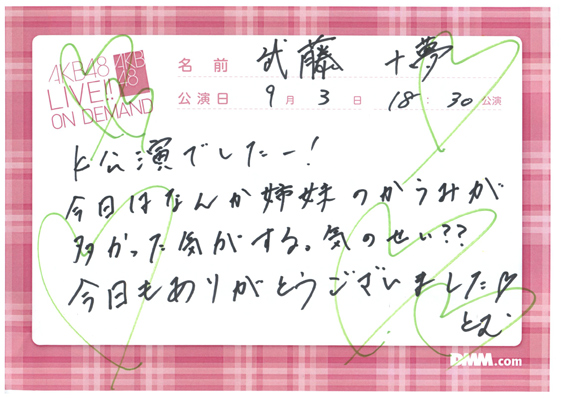 AKB48
LIVE!!
ON DEMAND
AKB
48
名前 武藤 十夢
公演日 9月3日 18:30公演
K公演でしたー!
今日はなんか姉妹のからみが
多かった気がする。気のせい??
今日もありがとうございました♡
とむ
DMM.com